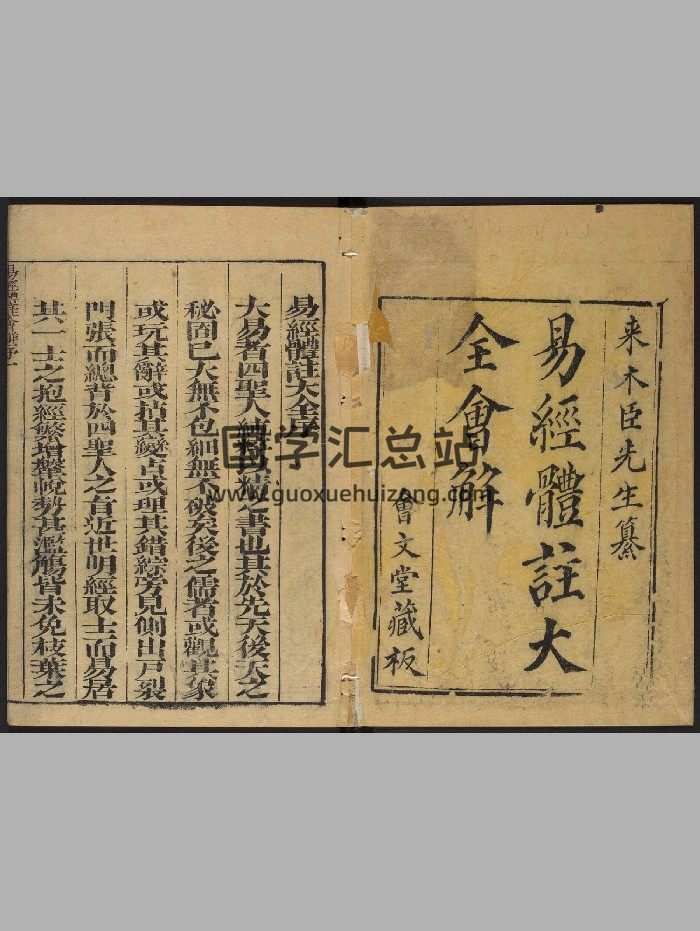 来木臣先生纂
易經體註大
全會解
會文堂藏板
易經體註大全序
大易者四聖人純粹以精之書也其於先天後天之
秘固已大無不包細無不破矣後之儒者或觀其象
或玩其辭或拈其變占或理其錯綜旁見側出戸裂
門張而總昔於四聖人之旨近世明經取士而易居
其一士之抱經繁增鞶帨勢甚濫觴皆未免枝葉之
国学汇总站
www.guoxuehuizong.com